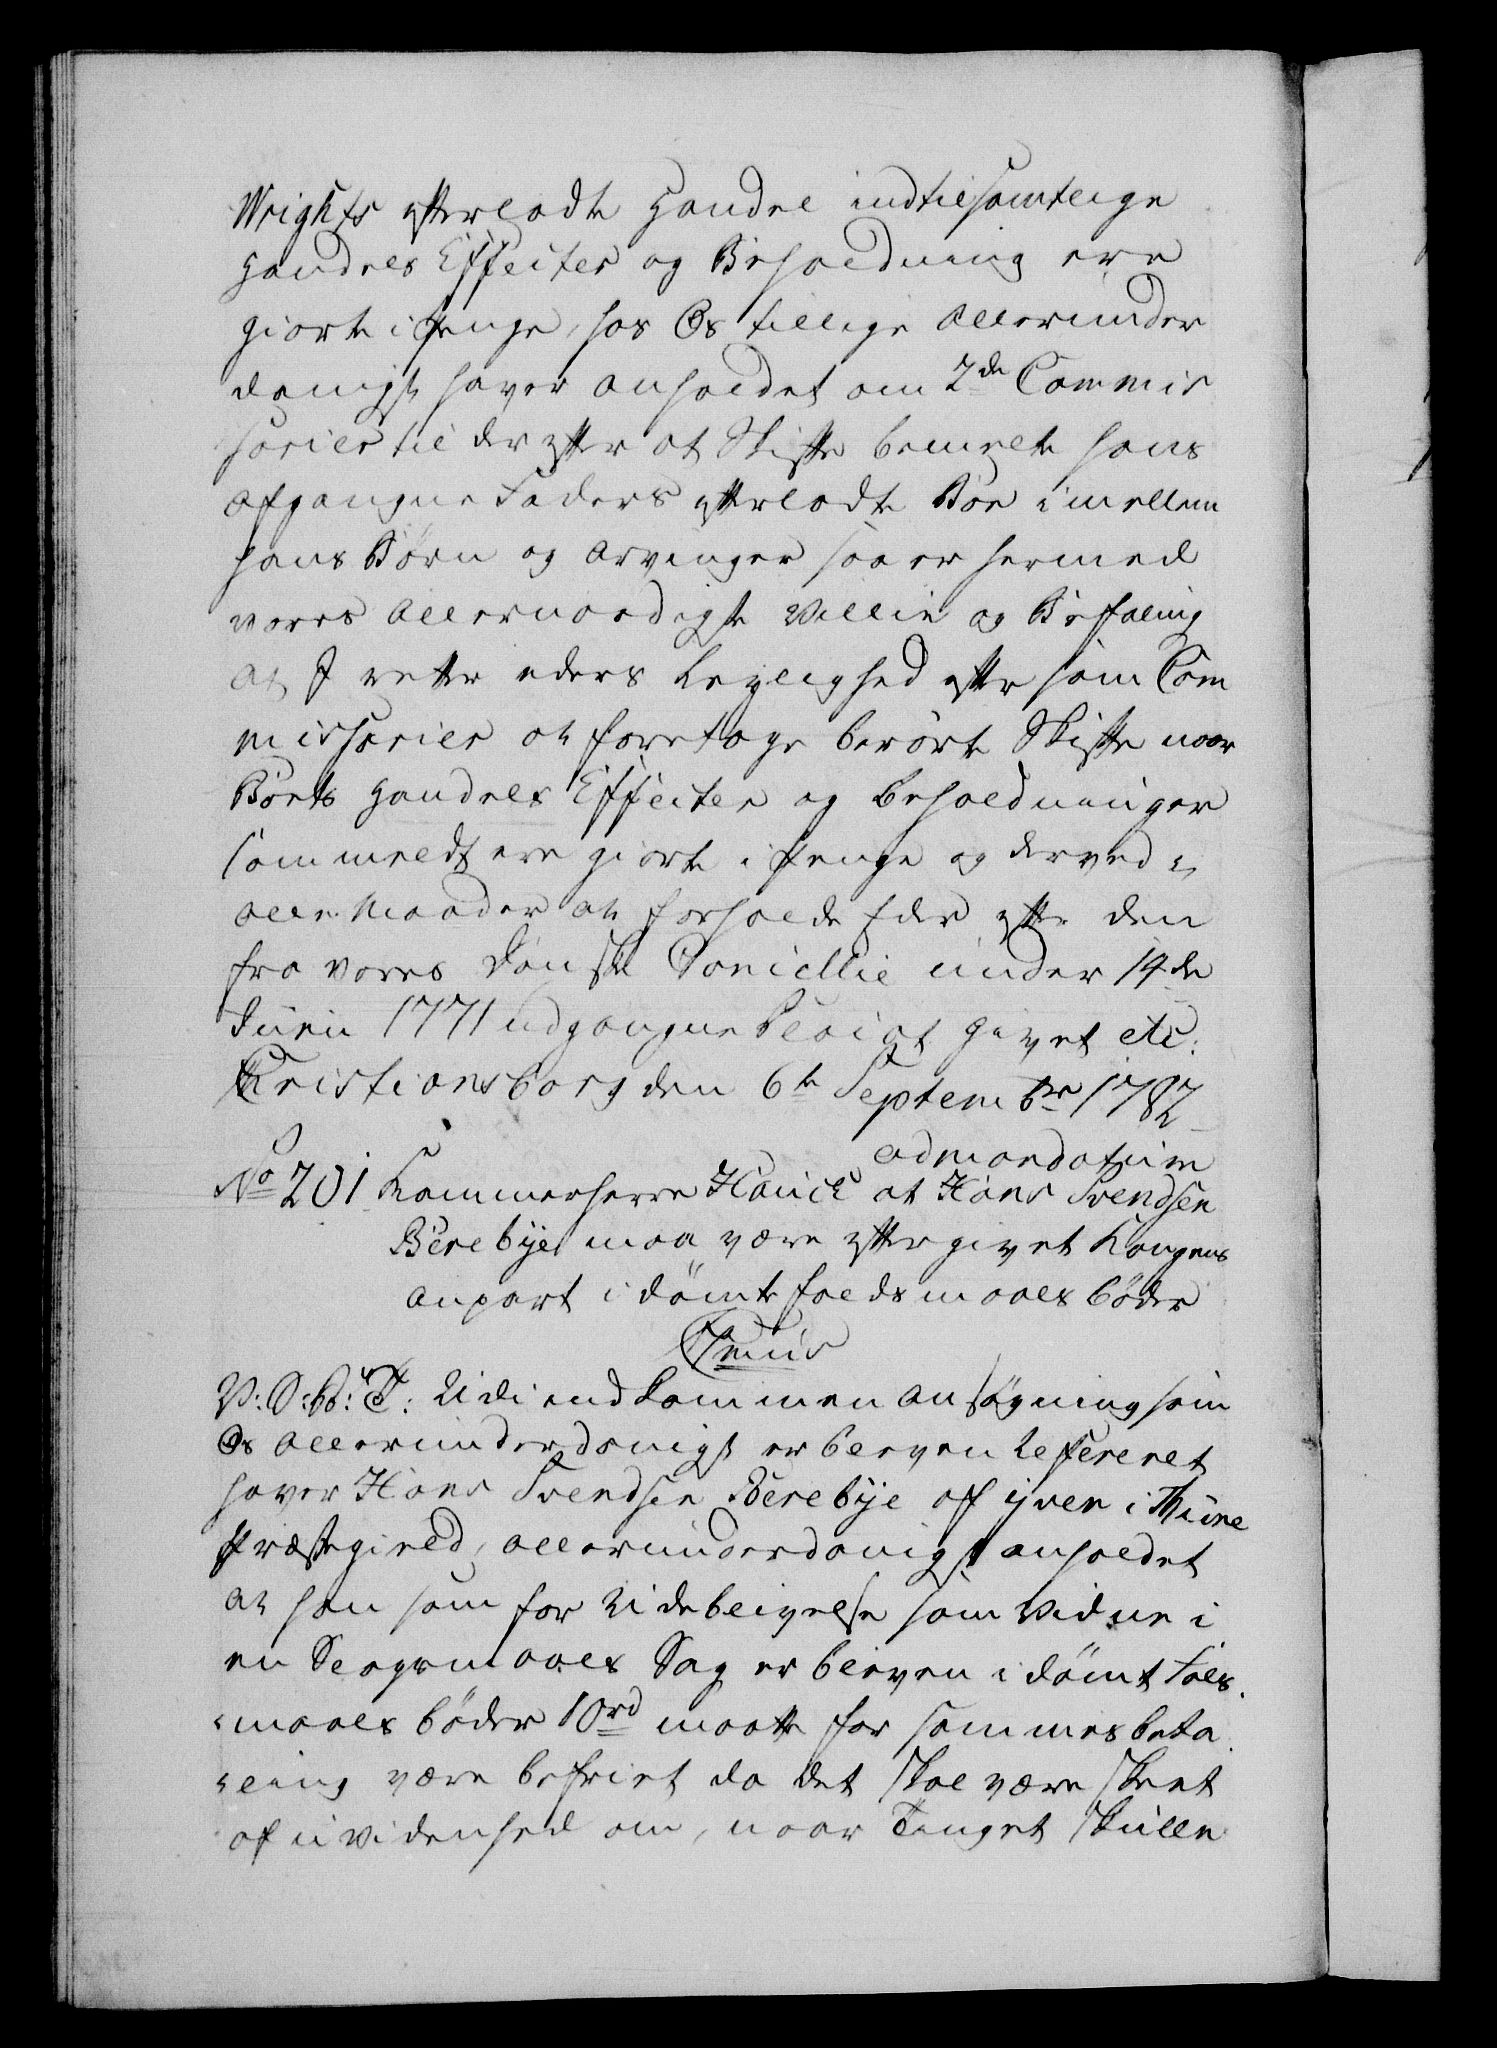 Wrights efterladte Handel indtil samtlige
Handels Effecter og Beholdning ere
giorte i Penge, hos Os tillige allerunder
danigst haver anholdet om 2de Commis
sarier til derefter at Skifte bemelte hans
afgangne Faders efterladte Boe imellem
hans Børn og Arvinger saa er hermed
vores Allernaadigste Villie og Befaling
at I rette eders Leylighed efter som Com
missarier at foretage berørte Skifte naar
Boets Handels Effecter og Beholdninger
sommeldt ere giorte i Penge og derved i
alle Maader at forholde Eder efter den
fra vores Danske Cancellie under 14de
Junii 1771 udgangne Placat Givet etc:
Christiansborg den 6te Septembr 1782
admandatum
No 201 Kammerherre Hauch at Hans Svendsen
Berebye maa være eftergivet Kongens
anpart i dømte faldsmaals bøder
V: S: G: T: Udi indkommen ansøgning som
Os allerunderdanigst er bleven refereret
haver Hans Svendsen Berebye af iver i Thune
Præstegield, allerunderdanigst anholdet
at han som for Udeblivelse som Vidne i
en Slagsmaals Sag er bleven i dømt fals
maals bøder 10rd maatte for sammes beta
ling være befriet da det skal være skeet
af uvidenhed om, naar Tinget skulle